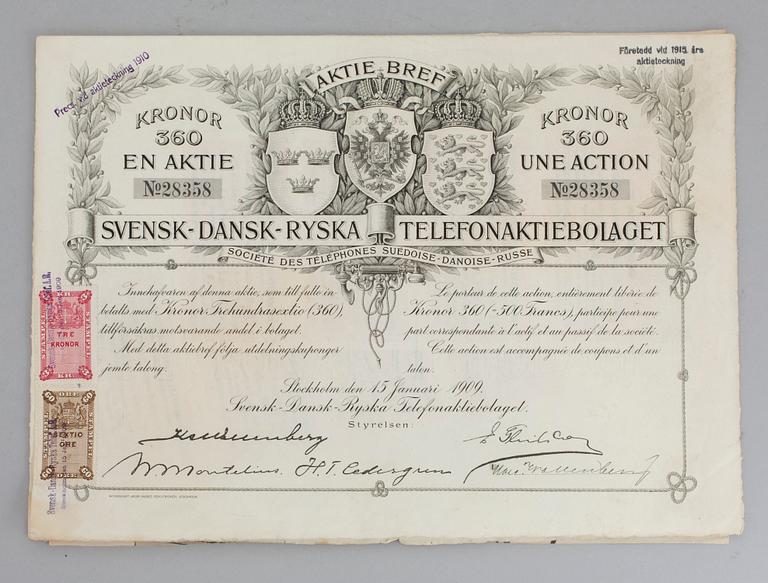 Pres. vid aktieteckning 1910
Företedd vid 1915 års
aktieteckning
AKTIE BREF
KRONOR
360
EN AKTIE
No 28358
KRONOR
360
UNE ACTION
No 28358
SVENSK-DANSK-RYSKA TELEFONAKTIEBOLAGET
SOCIÉTÉ DES TÉLÉPHONES SUÉDOISE-DANOISE-RUSSE
Innehafvaren af denna aktie, som till fullo in-
betalts med Kronor Trehundrasextio (360),
tillförsäkras motsvarande andel i bolaget.
Med detta aktiebref följa utdelningskuponger
jemte talong.
Le porteur de cette action, entièrement libérée de
Kronor 360 (=500 Francs), participe pour une
part correspondante à l'actif et au passif de la société.
Cette action est accompagnée de coupons et d'un
talon.
Stockholm den 15 Januari 1909.
Svensk-Dansk-Ryska Telefonaktiebolaget.
Styrelsen:
H. T. Cedergren
Marc. Wallenberg
TRE
KRONOR
SEXTIO
ÖRE
60
60